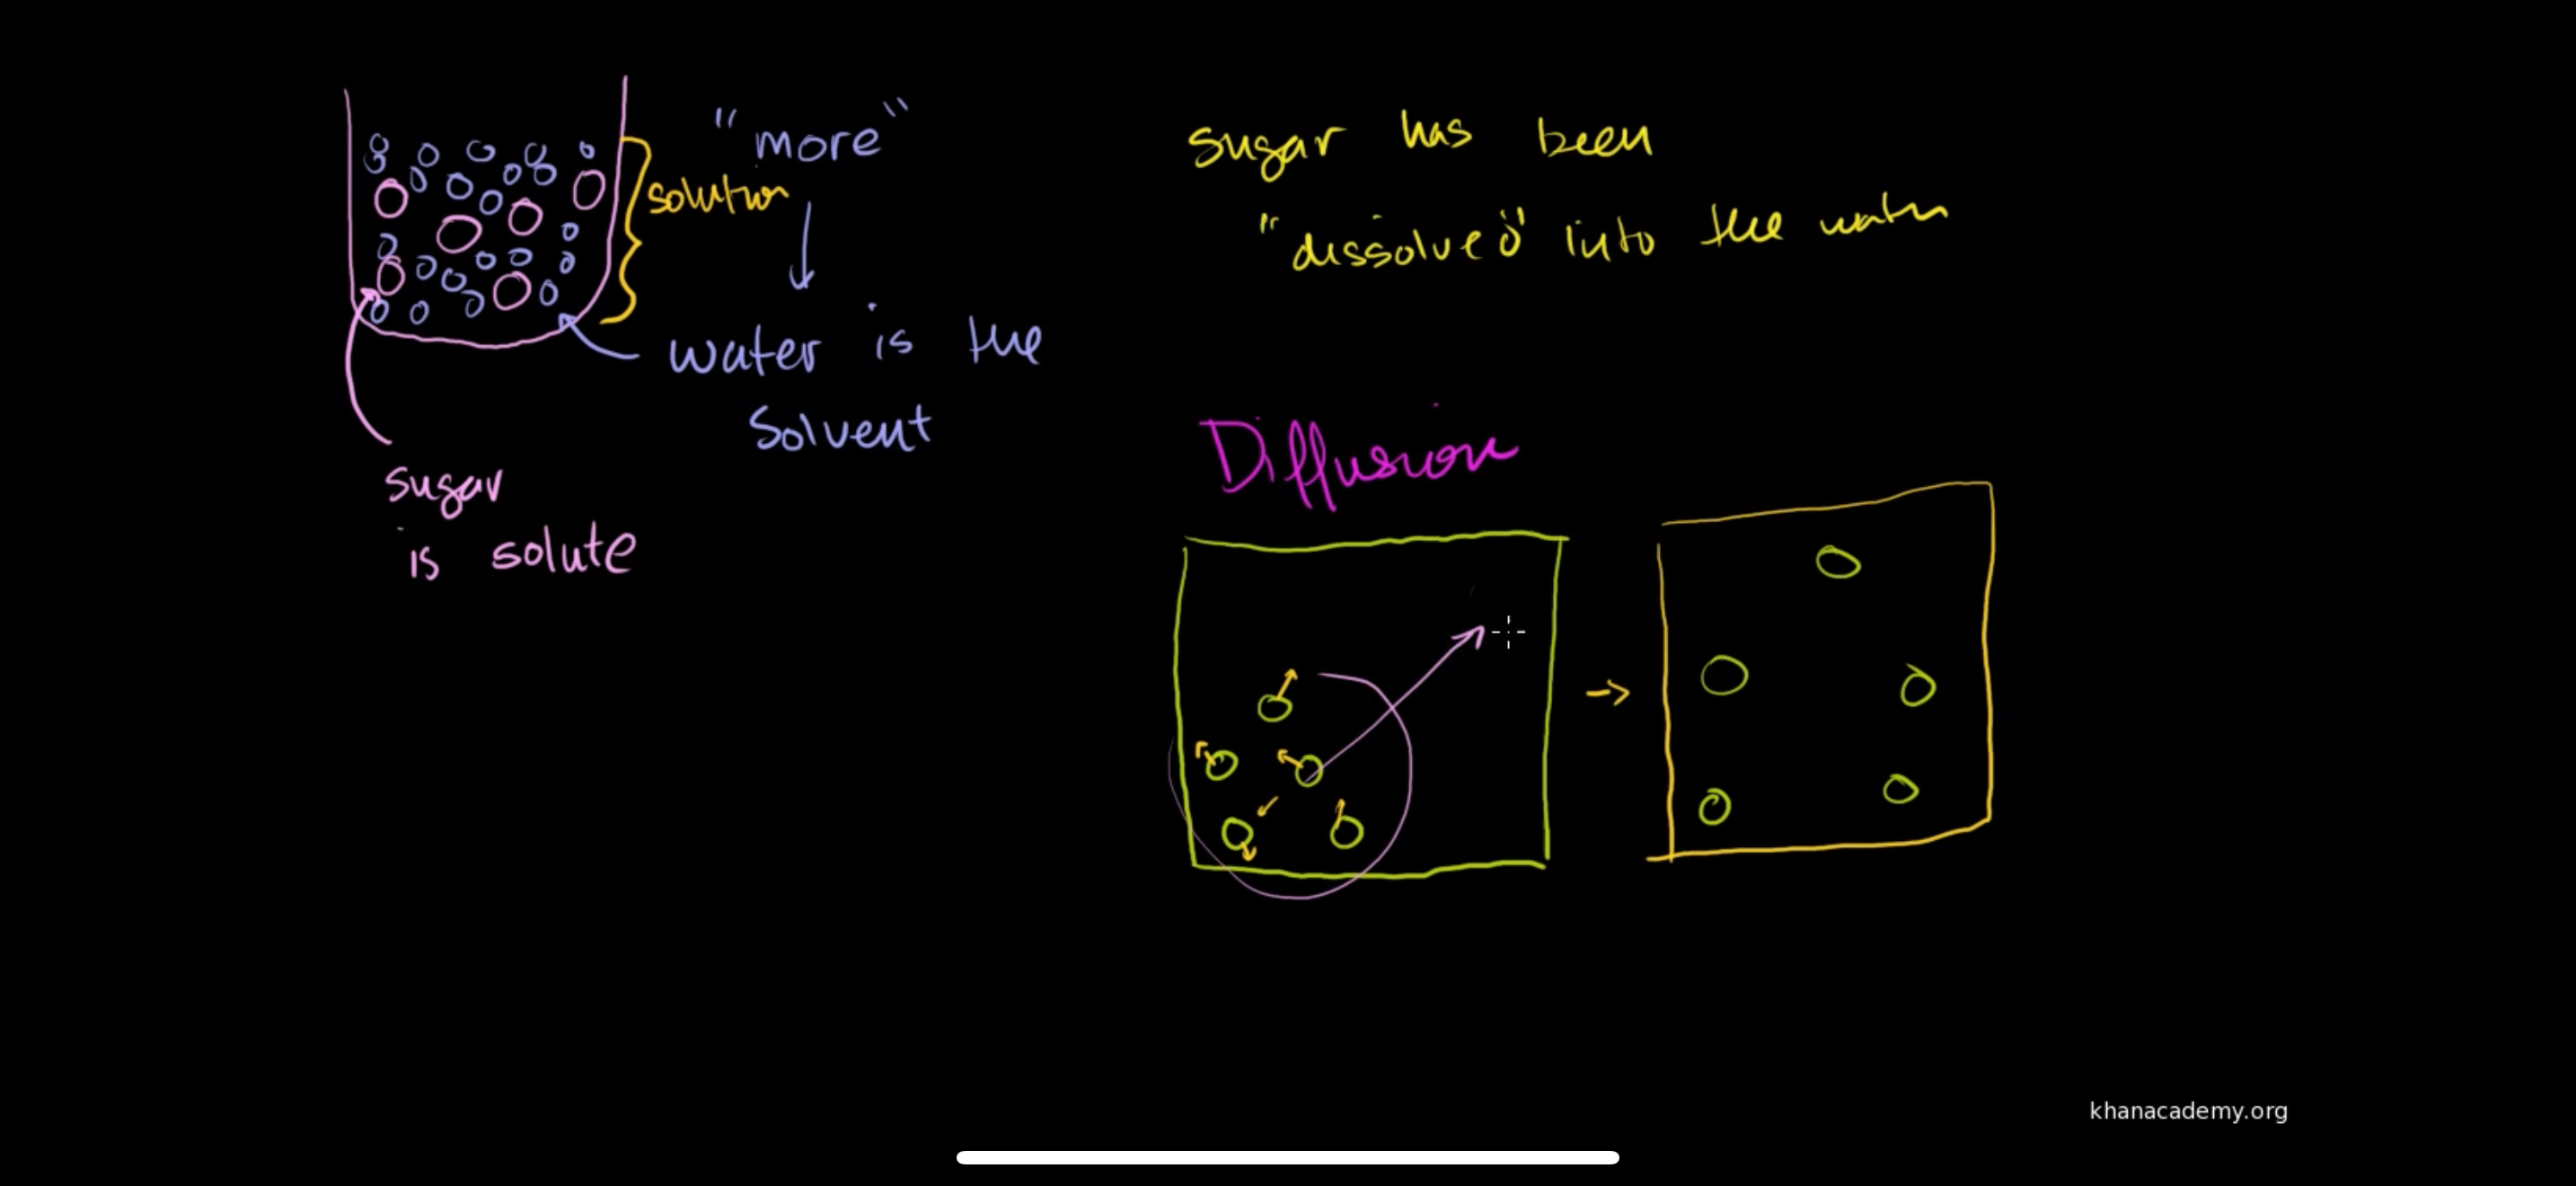 "more"
solution
water is the
solvent
sugar
is solute
sugar has been
"dissolved" into the water
Diffusion
khanacademy.org